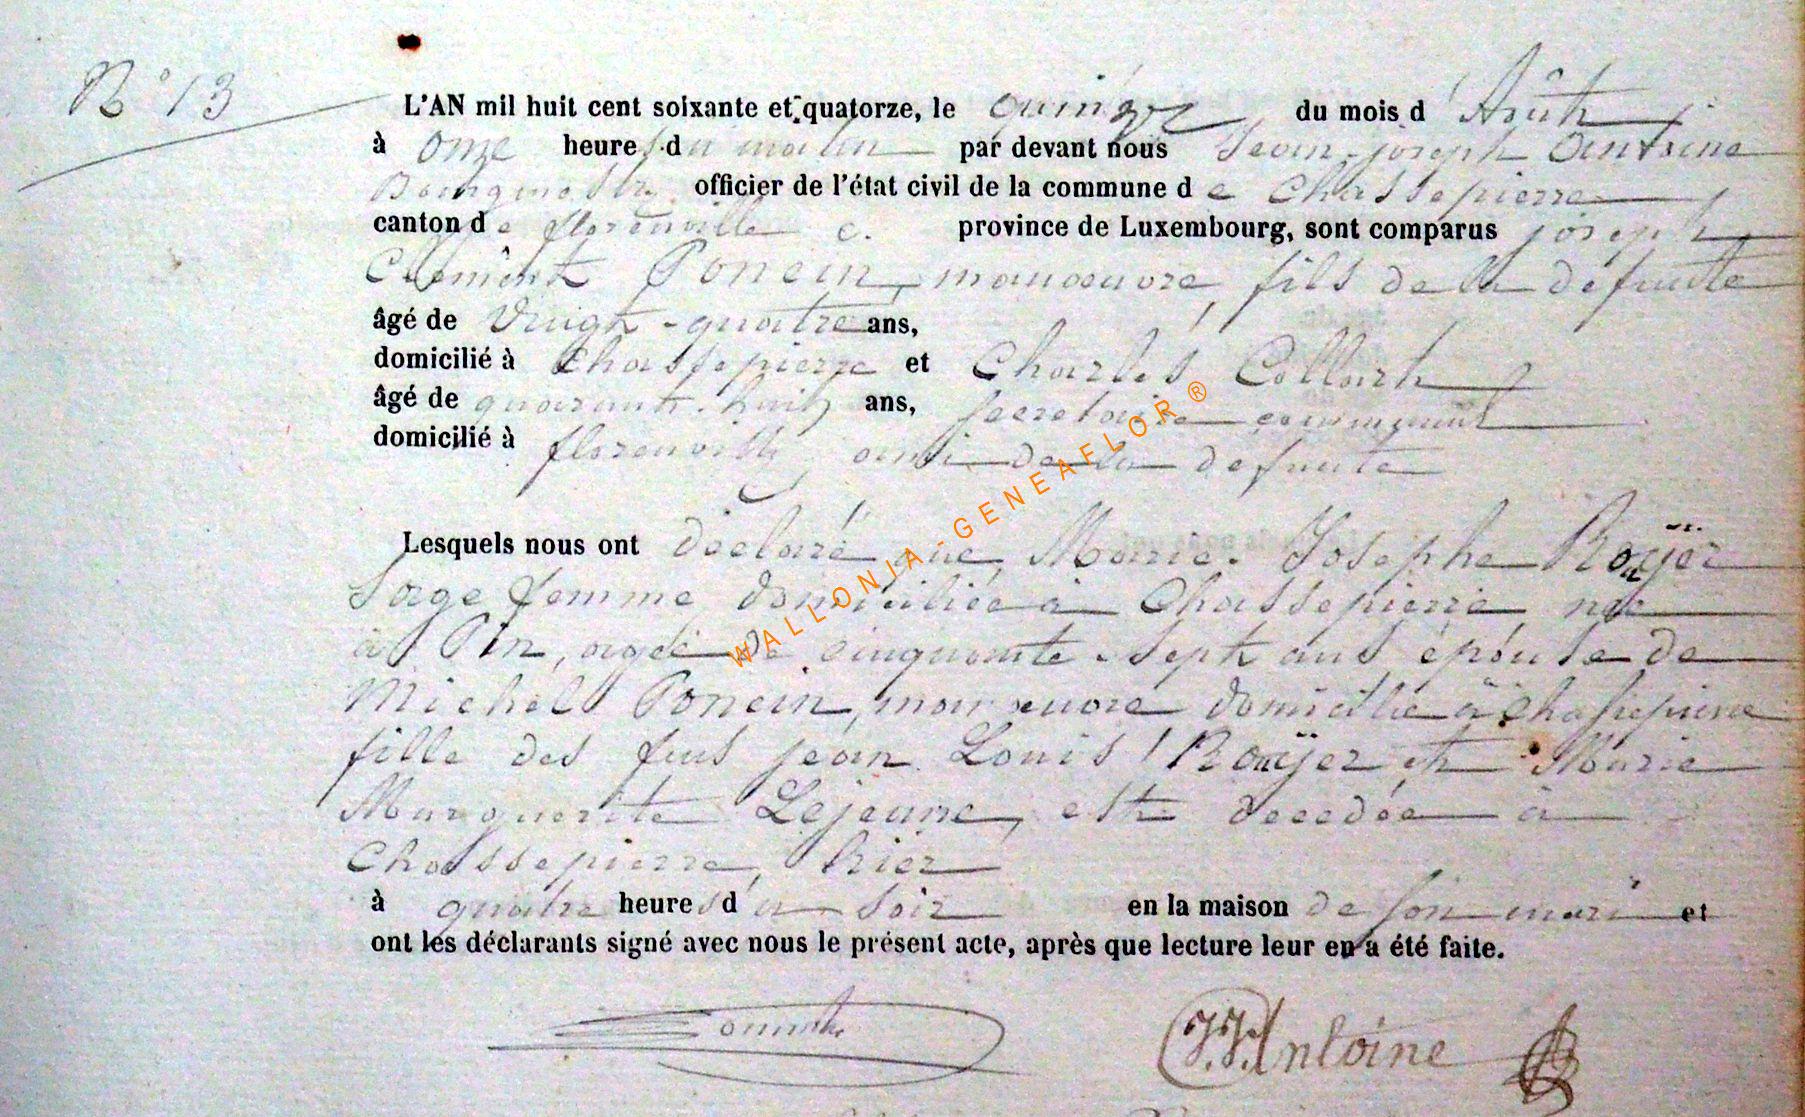 N° 13
L'AN mil huit cent soixante et quatorze, le quinze du mois d'Août
à onze heures du matin par devant nous Jean-joseph Antoine
Bourgmestre officier de l'état civil de la commune de Chassepierre
canton de florenville province de Luxembourg, sont comparus joseph
Clément Poncin, manoeuvre, fils de la defunte
âgé de vingt-quatre ans,
domicilié à Chassepierre et Charles Collart
âgé de quarante-huit ans, secretaire communal
domicilié à florenville, ami de la defunte
Lesquels nous ont déclaré que Marie-Josephe Roüÿer
Sage femme domiciliée à Chassepierre née
à Pin, agée de cinquante-sept ans épouse de
Michel Poncin, manoeuvre domicilié à Chassepierre
fille des feus jean Louis Roüÿer et Marie
Marguerite Lejeune, est decedée à
Chassepierre, hier
à quatre heures du soir en la maison de son mari et
ont les déclarants signé avec nous le présent acte, après que lecture leur en a été faite.
J.J. Antoine
WALLONIA-GENEAFLOR ®